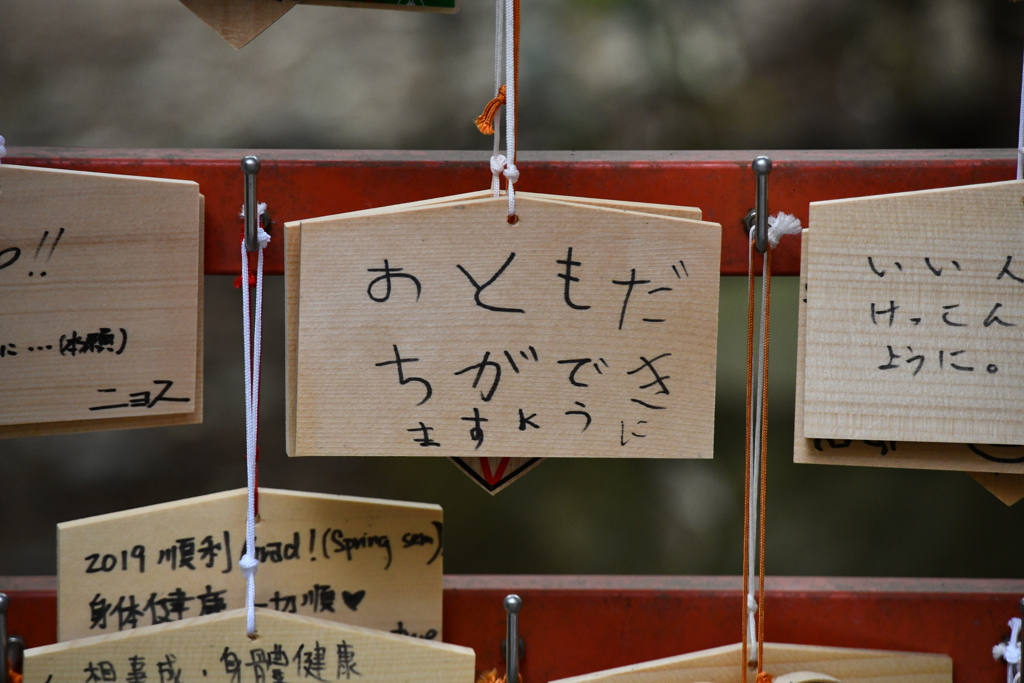 !!
に…(本願)
ニョス
おともだ
ちができ
ますように
いい人
けっこん
ように。
2019 順利 Grad! (Spring sem)
身体健康 一切順♥
想事成、身體健康